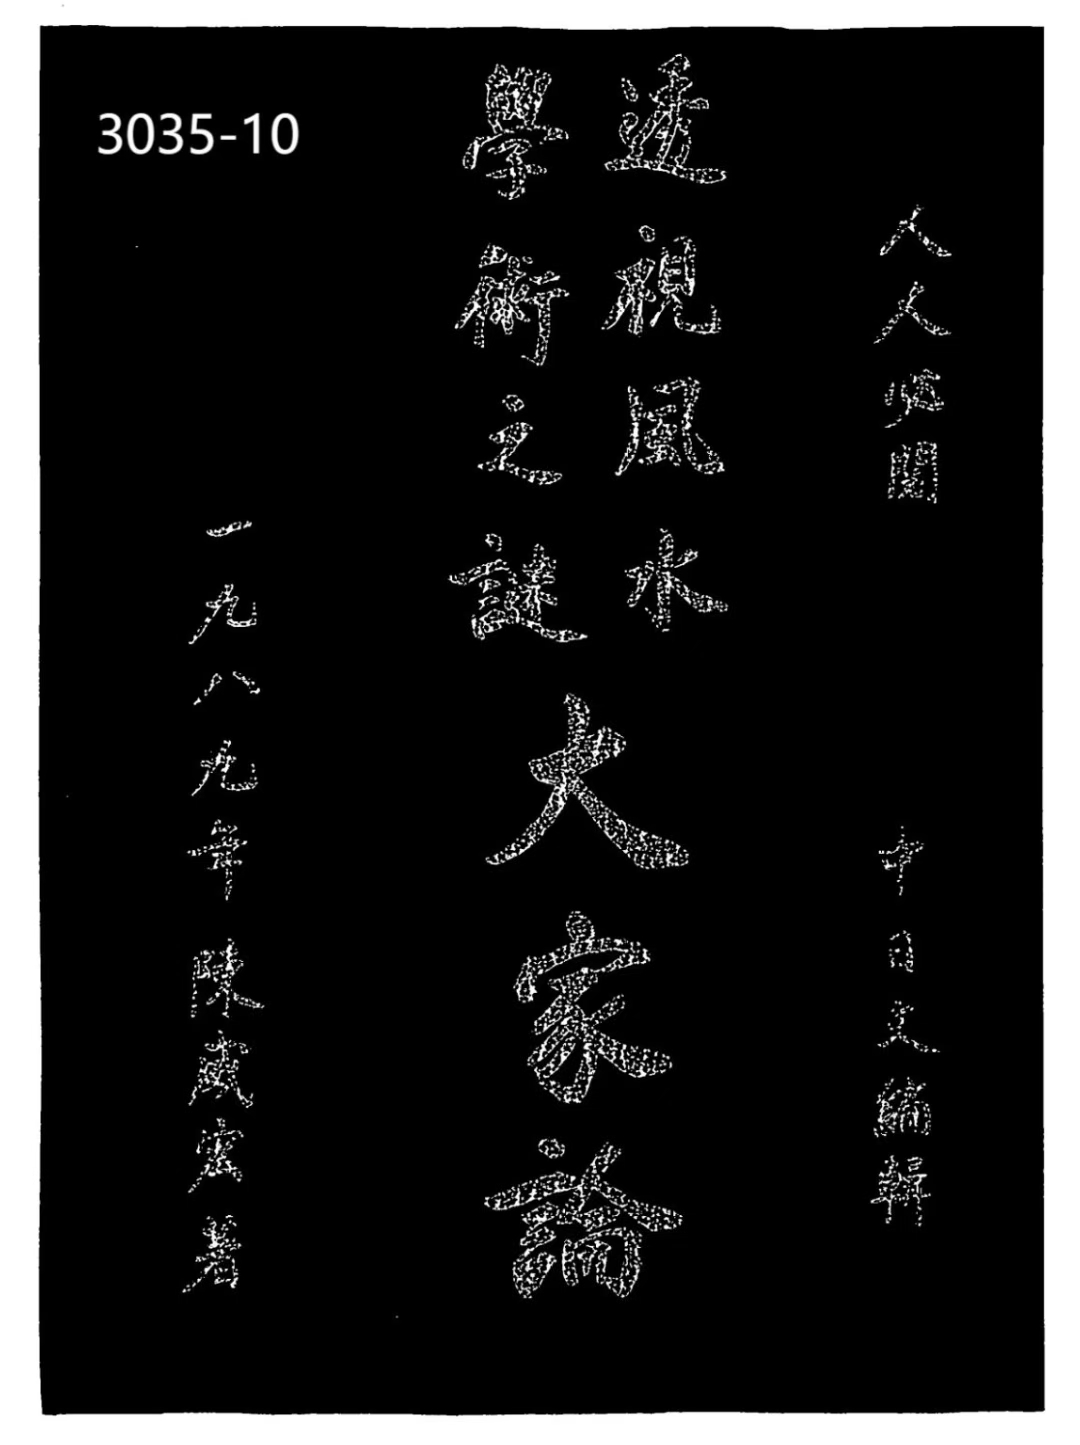 3035-10
人人閱
中日文編輯
透視風水
學術之謎
大家論
一九八九年陳威宏著